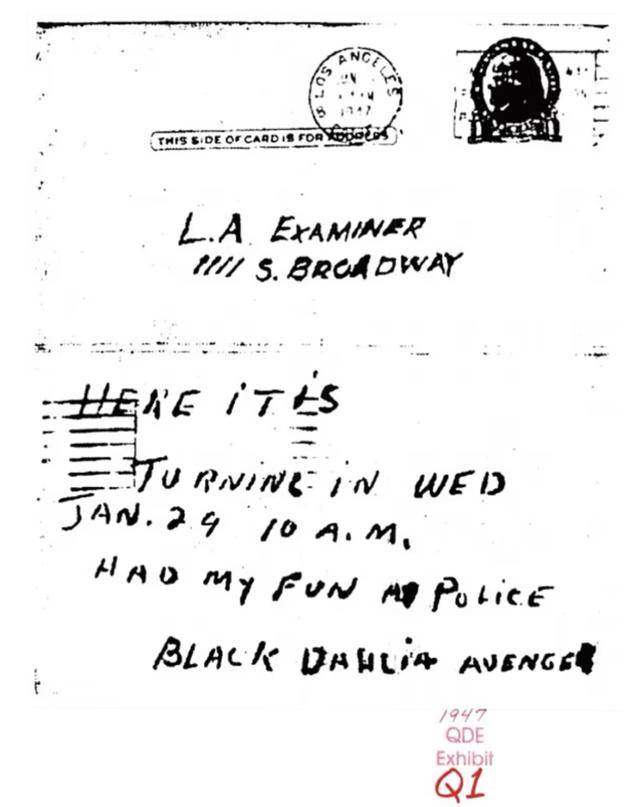 LOS ANGELES
1947
THIS SIDE OF CARD IS FOR ADDRESS
L.A. EXAMINER
1111 S. BROADWAY
HERE IT IS
TURNING IN WED
JAN. 29 10 A.M.
HAD MY FUN AT POLICE
BLACK DAHLIA AVENGER
1947
QDE
Exhibit
Q1